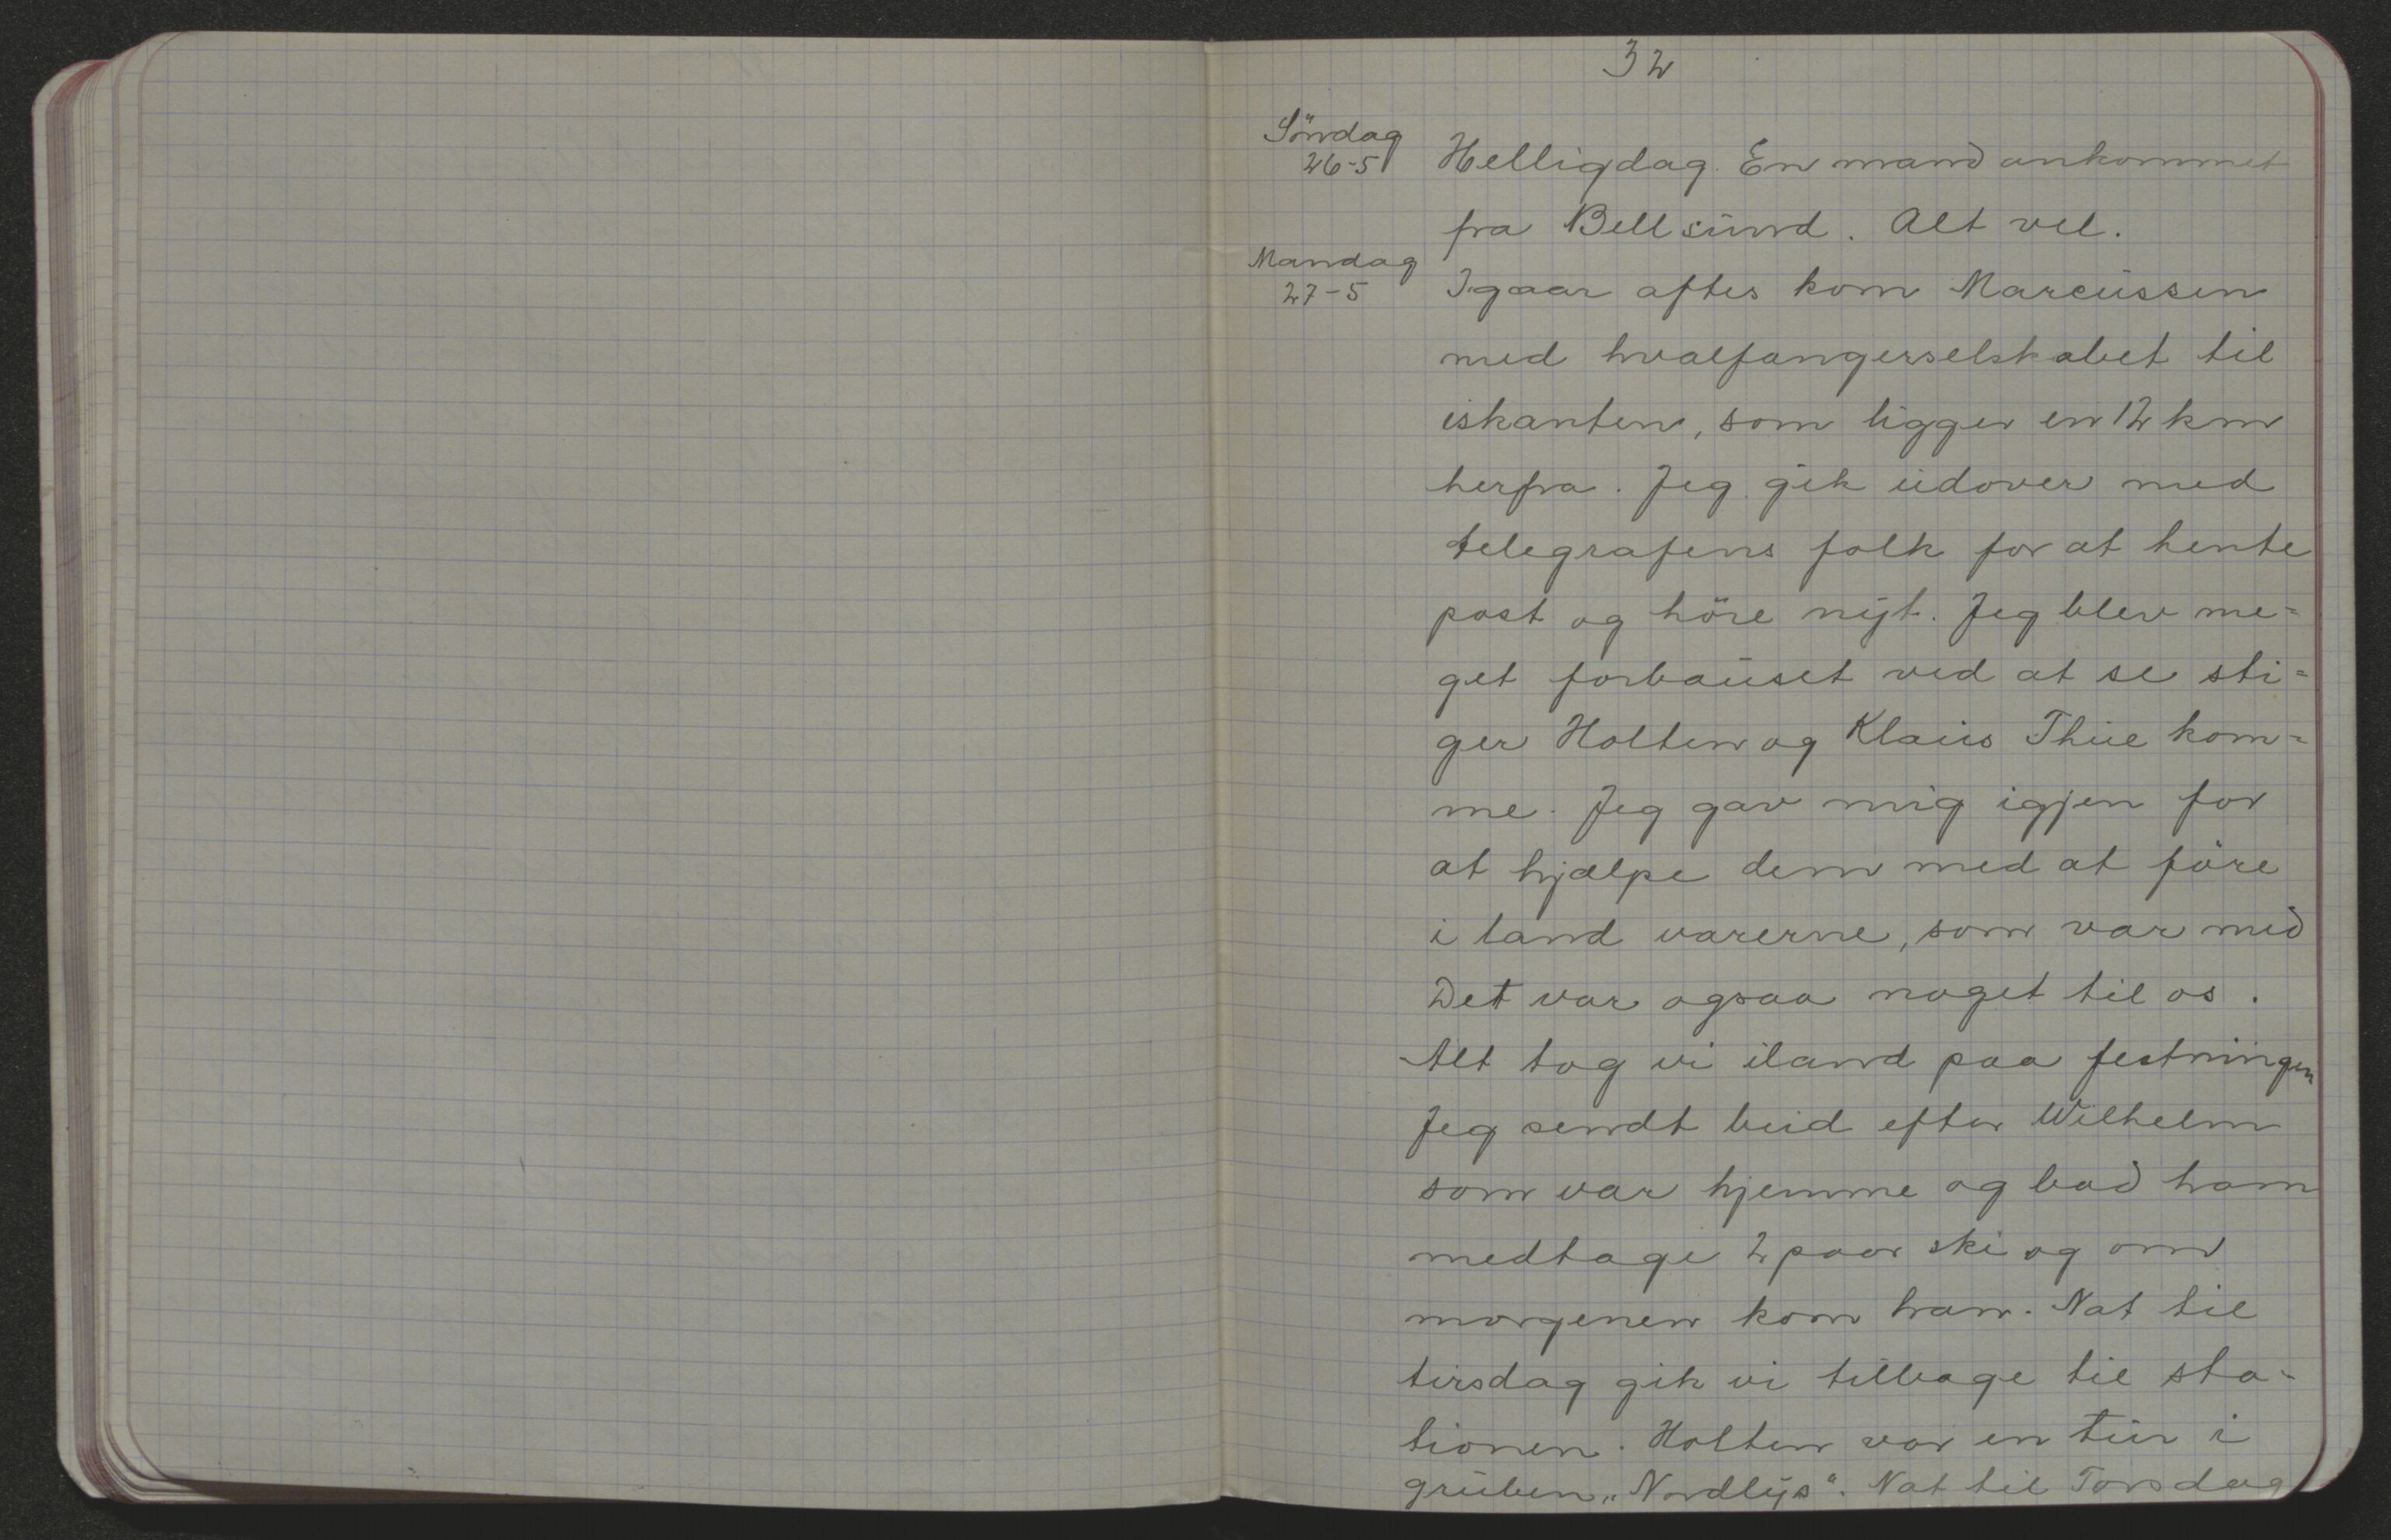 32
Söndag
26-5
Helligdag. En mand ankommet
fra Bellsund. Alt vel.
Mandag
27-5
Igaar aftes kom Marcussen
med hvalfangerselskabet til
iskanten, som ligger en 12 km
herfra. Jeg gik udover med
telegrafens folk for at hente
post og höre nyt. Jeg blev me=
get forbauset ved at se sti=
ger Holten og Klaus Thue kom=
me. Jeg gav mig igjen for
at hjælpe dem med at före
i land varerne, som var med
Det var ogsaa noget til os.
Alt tog vi iland paa festningen
Jeg sendt bud efter Wilhelm
som var hjemme og bad ham
medtage 2 paar ski og om
morgenen kom han. Nat til
tirsdag gik vi tilbage til sta-
tionen. Holten var en tur i
gruben „Nordlys". Nat til Torsdag